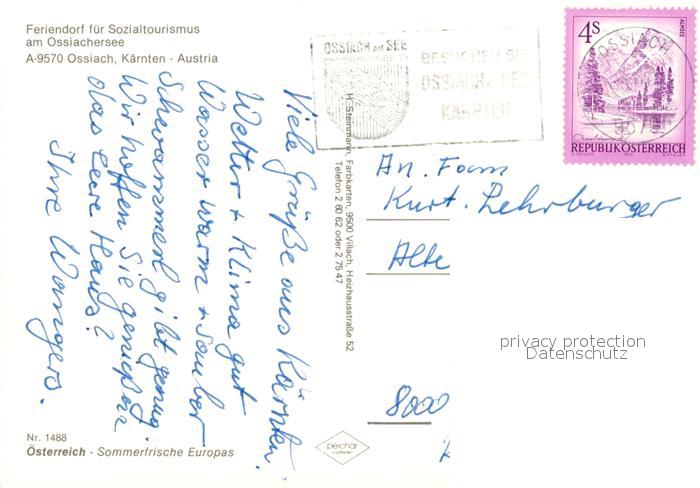 Feriendorf für Sozialtourismus
am Ossiachersee
A-9570 Ossiach, Kärnten - Austria
OSSIACH am SEE
BESUCHEN SIE
OSSIACH a. SEE
KÄRNTEN
4S
ALMSEE
OSSIACH
REPUBLIK ÖSTERREICH
Viele Grüße aus Kärnten.
Wetter + Klima gut
Wasser warm + sauber
Schwammerl gibt genug.
Wir hoffen Sie genießen
das leere Haus?
Ihre Wangers.
H. Steinmann, Farbkarten, 9500 Villach, Heizhausstraße 52
Telefon 2 60 62 oder 2 75 47
An. Fam
Kurt. Lehrburger
Alte
8000
privacy protection
Datenschutz
Nr. 1488
Österreich - Sommerfrische Europas